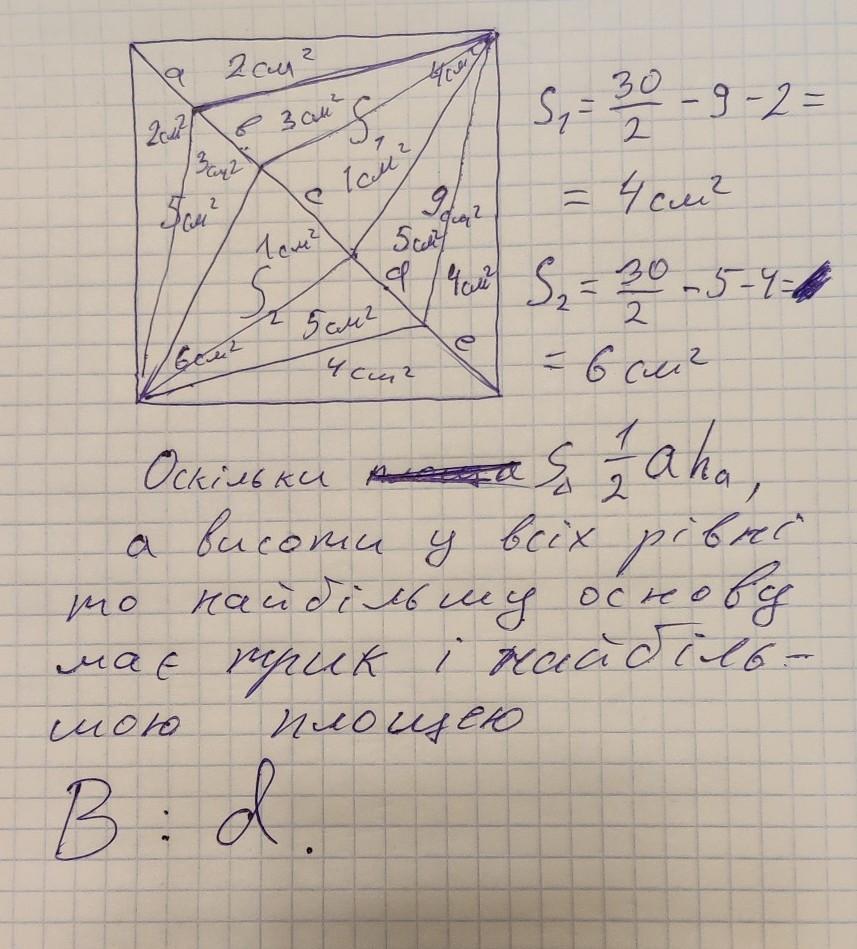 a 2см²
4см²
2см² в 3см² S₁
3см²
5см² c 1см²
9см²
1см² 5см²
d 4см²
S₂ 5см² e
6см² 4см²
S₁ = 30/2 - 9 - 2 =
= 4см²
S₂ = 30/2 - 5 - 4 =
= 6см²
Оскільки S△ 1/2 a hₐ,
а висоти у всіх рівні
то найбільшу основу
має трик і найбіль-
шою площею
В : d.